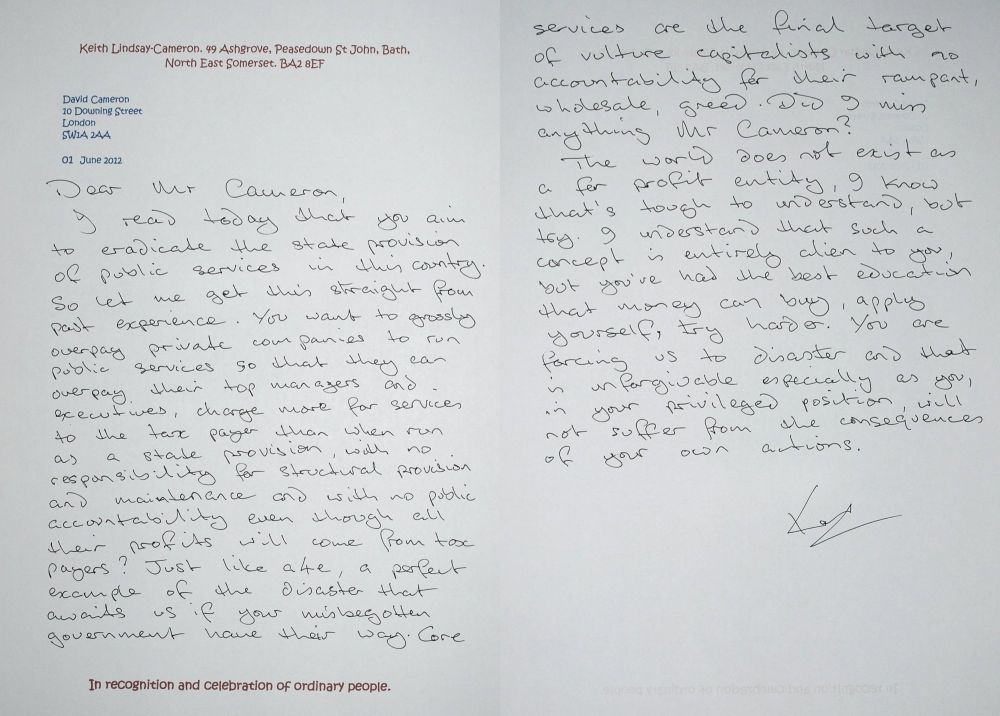 Keith Lindsay-Cameron. 49 Ashgrove, Peasedown St John, Bath,
North East Somerset. BA2 8EF
David Cameron
10 Downing Street
London
SW1A 2AA
01 June 2012
Dear Mr Cameron,
I read today that you aim
to eradicate the state provision
of public services in this country.
So let me get this straight from
past experience. You want to grossly
overpay private companies to run
public services so that they can
overpay their top managers and
executives, charge more for services
to the tax payer than when run
as a state provision, with no
responsibility for structural provision
and maintenance and with no public
accountability even though all
their profits will come from tax
payers? Just like a4e, a perfect
example of the disaster that
awaits us if your misbegotten
government have their way. Core
In recognition and celebration of ordinary people.
services are the final target
of vulture capitalists with no
accountability for their rampant,
wholesale, greed. Did I miss
anything Mr Cameron?
The world does not exist as
a for profit entity, I know
that's tough to understand, but
try. I understand that such a
concept is entirely alien to you,
but you've had the best education
that money can buy, apply
yourself, try harder. You are
forcing us to disaster and that
is unforgivable especially as you,
in your privileged position, will
not suffer from the consequences
of your own actions.